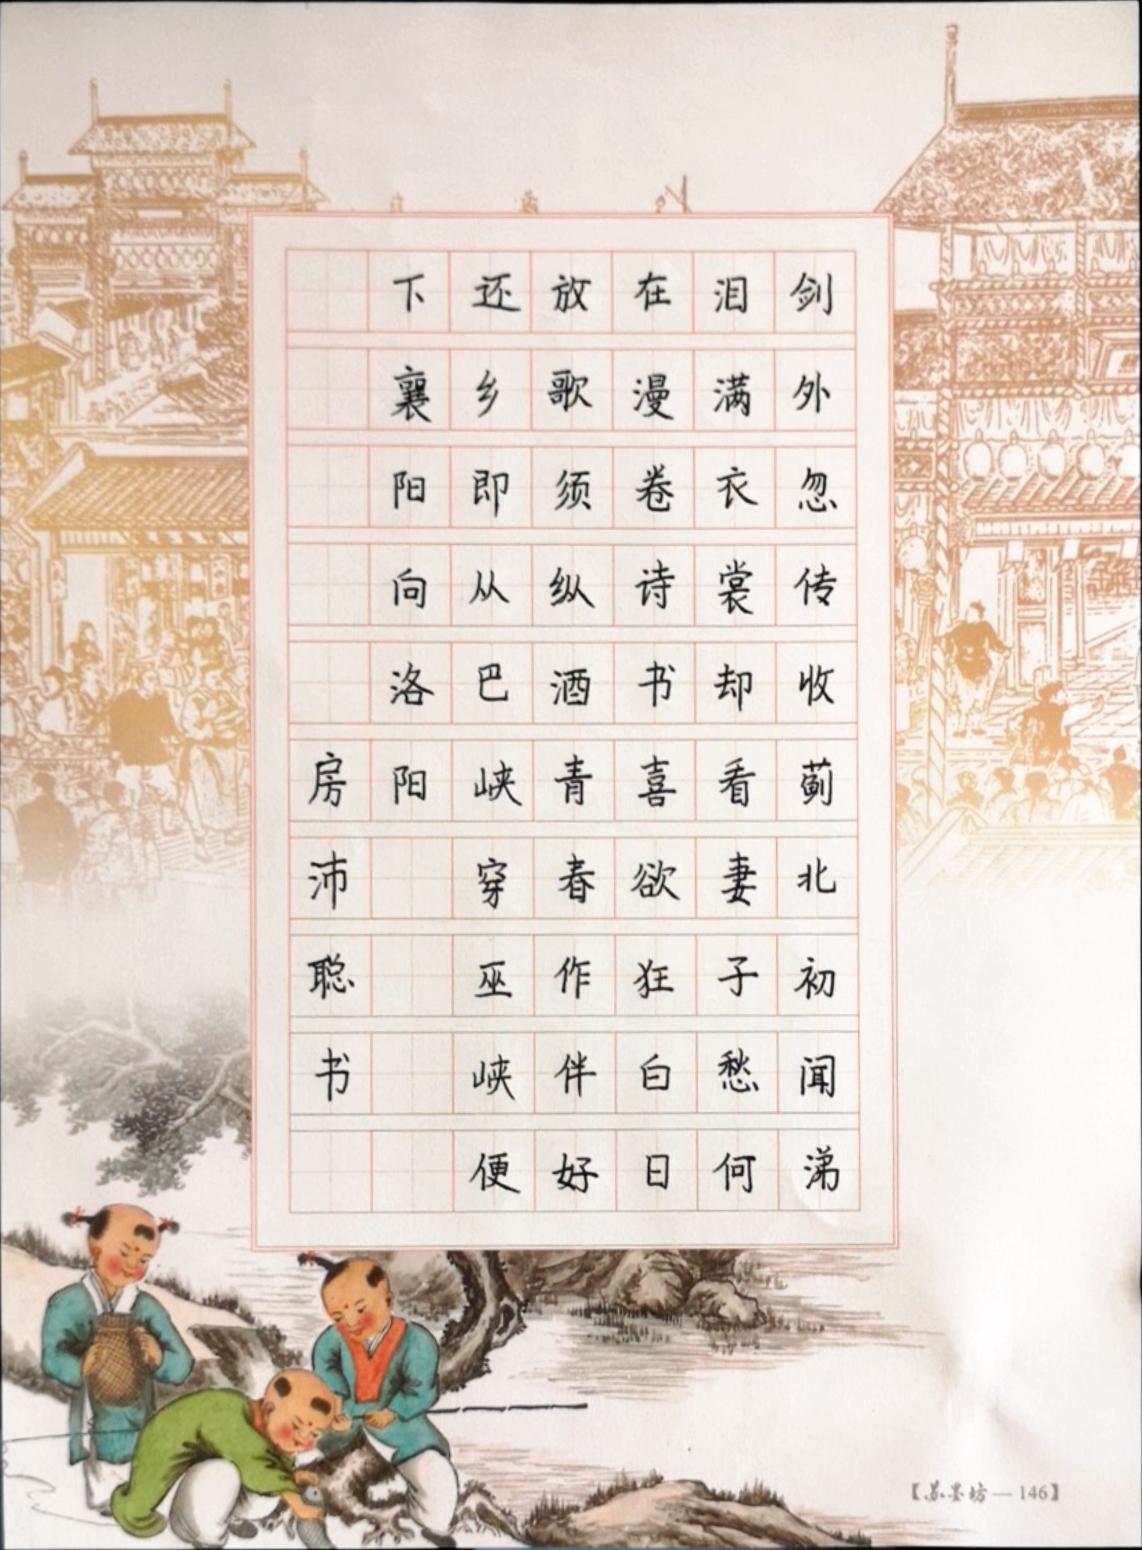 剑外忽传收蓟北初闻涕
泪满衣裳却看妻子愁何
在漫卷诗书喜欲狂白日
放歌须纵酒青春作伴好
还乡即从巴峡穿巫峡便
下襄阳向洛阳
房沛聪书
【苏墨坊—146】